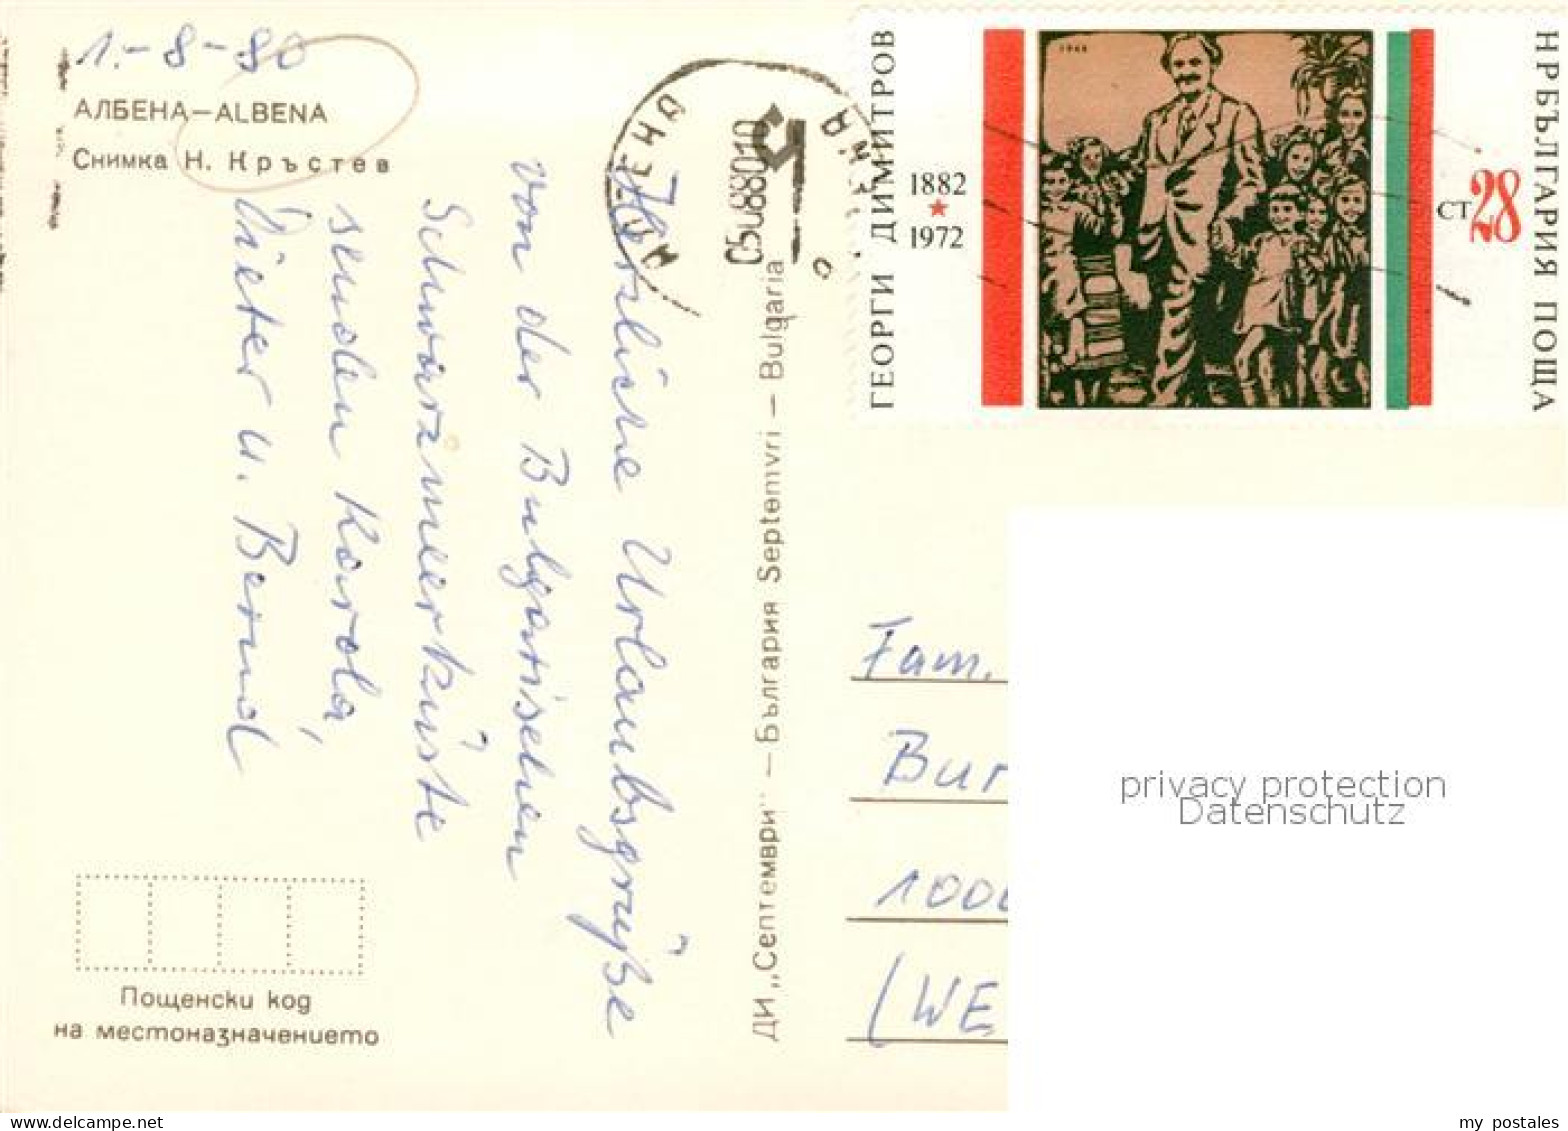 1.-8-80
АЛБЕНА–ALBENA
Снимка Н. Кръстев
Herzliche Urlaubsgrüße
von der Bulgarischen
Schwarzmeerküste
senden Karola,
Dieter u. Bernd
Пощенски код
на местоназначението
ДИ „Септември" — България Septemvri — Bulgaria
ГЕОРГИ ДИМИТРОВ
1882
★
1972
1946
СТ 28
НР БЪЛГАРИЯ ПОЩА
Fam.
Bur
1000
(WE
privacy protection
Datenschutz
my postales